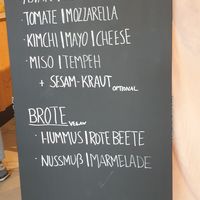 · TOMATE | MOZZARELLA
· KIMCHI | MAYO | CHEESE
· MISO | TEMPEH
+ SESAM-KRAUT OPTIONAL
BROTE VEGAN
· HUMMUS | ROTE BEETE
· NUSSMUß | MARMELADE